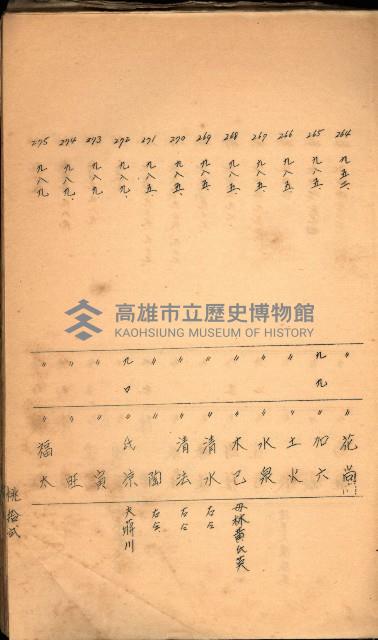 264 九五二 〃 〃 花尚
265 九八五 九九 〃 加六
266 九八五 〃 〃 土火
267 九八五 〃 〃 水泉
268 九八五 〃 〃 木己 母林黃氏英
269 九八五 〃 〃 清水 右仝
270 九八五 〃 〃 清法 右仝
271 九八五 〃 〃 陶 右仝
272 九八九 九口 氏涼 夫
273 九八九 〃 〃 寅
274 九八九 〃 〃 旺
275 九八九 〃 〃 福太
拾貳
高雄市立歷史博物館
KAOHSIUNG MUSEUM OF HISTORY